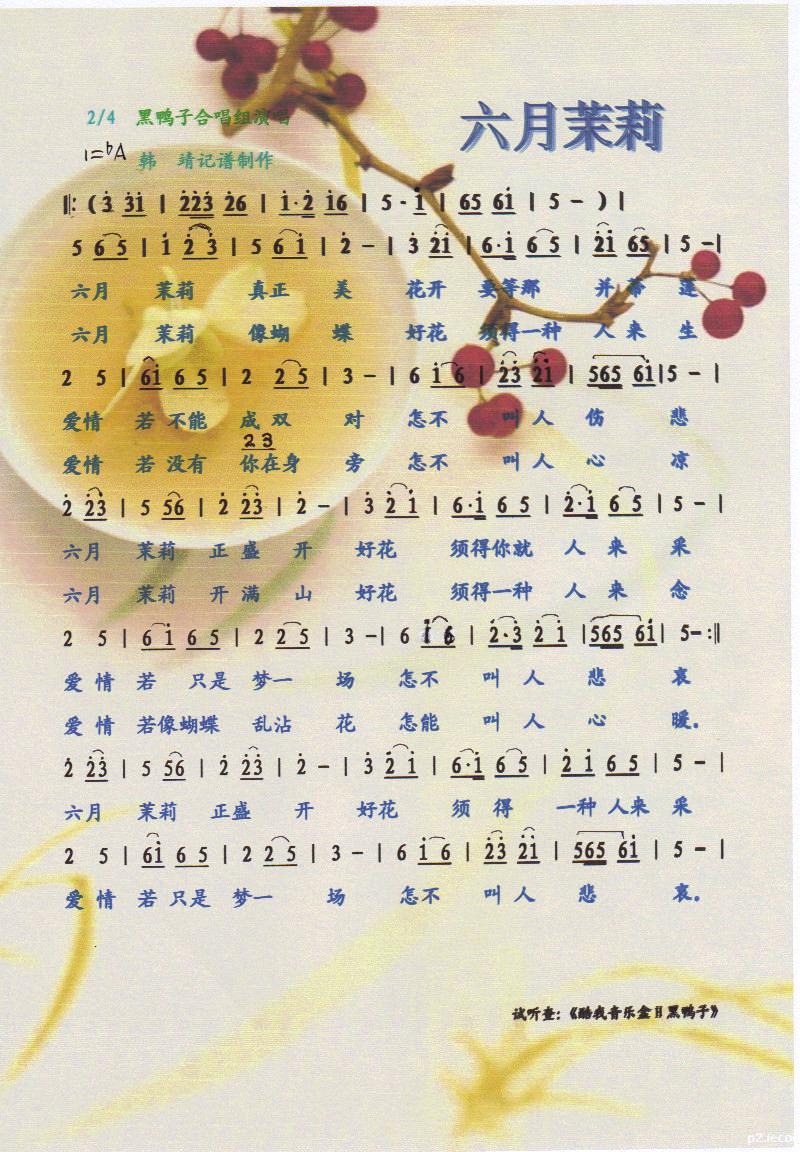 六月茉莉
2/4 黑鸭子合唱组演唱
1=bA 韩 靖记谱制作
‖: ( 3̇ 3̇1̇ | 2̇2̇3̇ 2̇6 | 1̇·2̇ 1̇6 | 5 · 1̇ | 65 61̇ | 5 – ) |
5 6 5 | 1̇ 2̇ 3̇ | 5 6 1̇ | 2̇ – | 3̇ 2̇1̇ | 6·1̇ 6 5 | 2̇1̇ 65 | 5 –|
六月 茉莉 真正 美 花开 要等那 并蒂 莲
六月 茉莉 像蝴 蝶 好花 须得一种 人来 生
2 5 | 61̇ 6 5 | 2 2 5 | 3 – | 6 1̇ 6 | 2̇3̇ 2̇1̇ | 565 61̇|5 – |
爱情 若 不能 成 双 对 怎不 叫人 伤 悲
2 3
爱情 若 没有 你在身 旁 怎不 叫人 心 凉
2̇ 2̇3̇ | 5 56 | 2̇ 2̇3̇ | 2̇ – | 3̇ 2̇ 1̇ | 6·1̇ 6 5 | 2̇·1̇ 6 5 | 5 – |
六月 茉莉 正 盛 开 好花 须得你就 人 来 采
六月 茉莉 开 满 山 好花 须得一种 人 来 念
2 5 | 6 1̇ 6 5 | 2 2 5 | 3 –| 6 1̇ 6 | 2̇·3̇ 2̇ 1̇ |565 61̇| 5–:‖
爱 情 若 只是 梦一 场 怎不 叫 人 悲 哀
爱 情 若像蝴蝶 乱沾 花 怎能 叫 人 心 暖.
2̇ 2̇3̇ | 5 56 | 2̇ 2̇3̇ | 2̇ – | 3̇ 2̇ 1̇ | 6·1̇ 6 5 | 2̇ 1̇ 6 5 | 5 – |
六月 茉莉 正盛 开 好花 须 得 一种 人来 采
2 5 | 61̇ 6 5 | 2 2 5 | 3 – | 6 1̇ 6 | 2̇3̇ 2̇1̇ | 565 61̇ | 5 – |
爱 情 若 只是 梦一 场 怎不 叫 人 悲 哀.
试听查:《酷我音乐盒目黑鸭子》